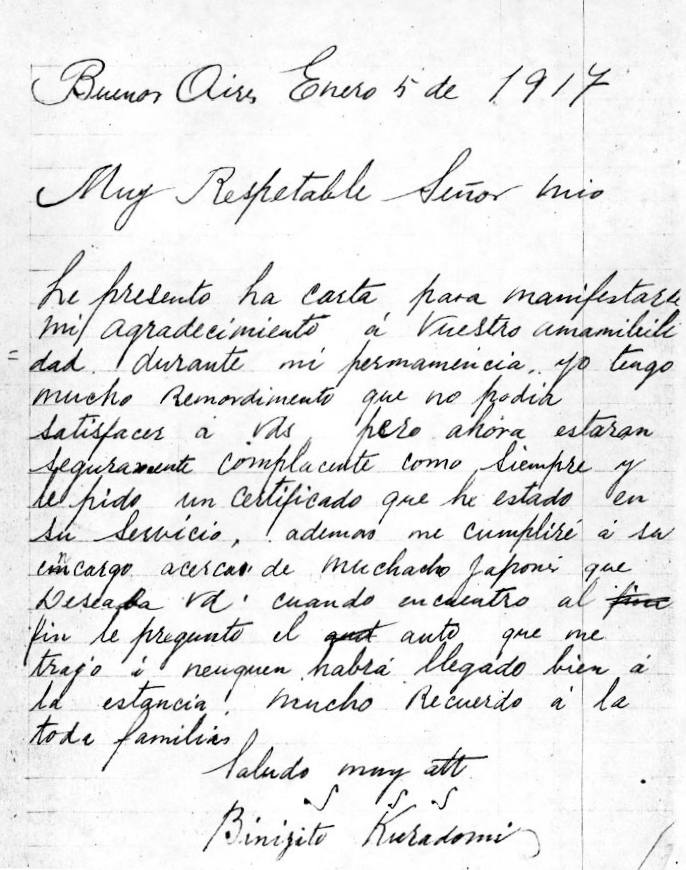 Buenos Aires Enero 5 de 1917
Muy Respetable Señor mio
Le presento ha carta para manifestarle
mi agradecimiento á vuestro amamibili
= dad durante mi permamencia, yo tengo
mucho Remordimento que no podia
satisfacer á vds, pero ahora estaran
seguramente complacente como siempre y
le pido un certificado que he estado en
su servicio, ademas me cumpliré á su
encargo acerca de muchacho Japonés que
Deseaba vd. cuando encuentro al fin
fin le pregunto el auto que me
trajo á neuquen habrá llegado bien á
la estancia. mucho Recuerdo á la
toda familia
Saludo muy att
S S S
Binizito Kuradomi